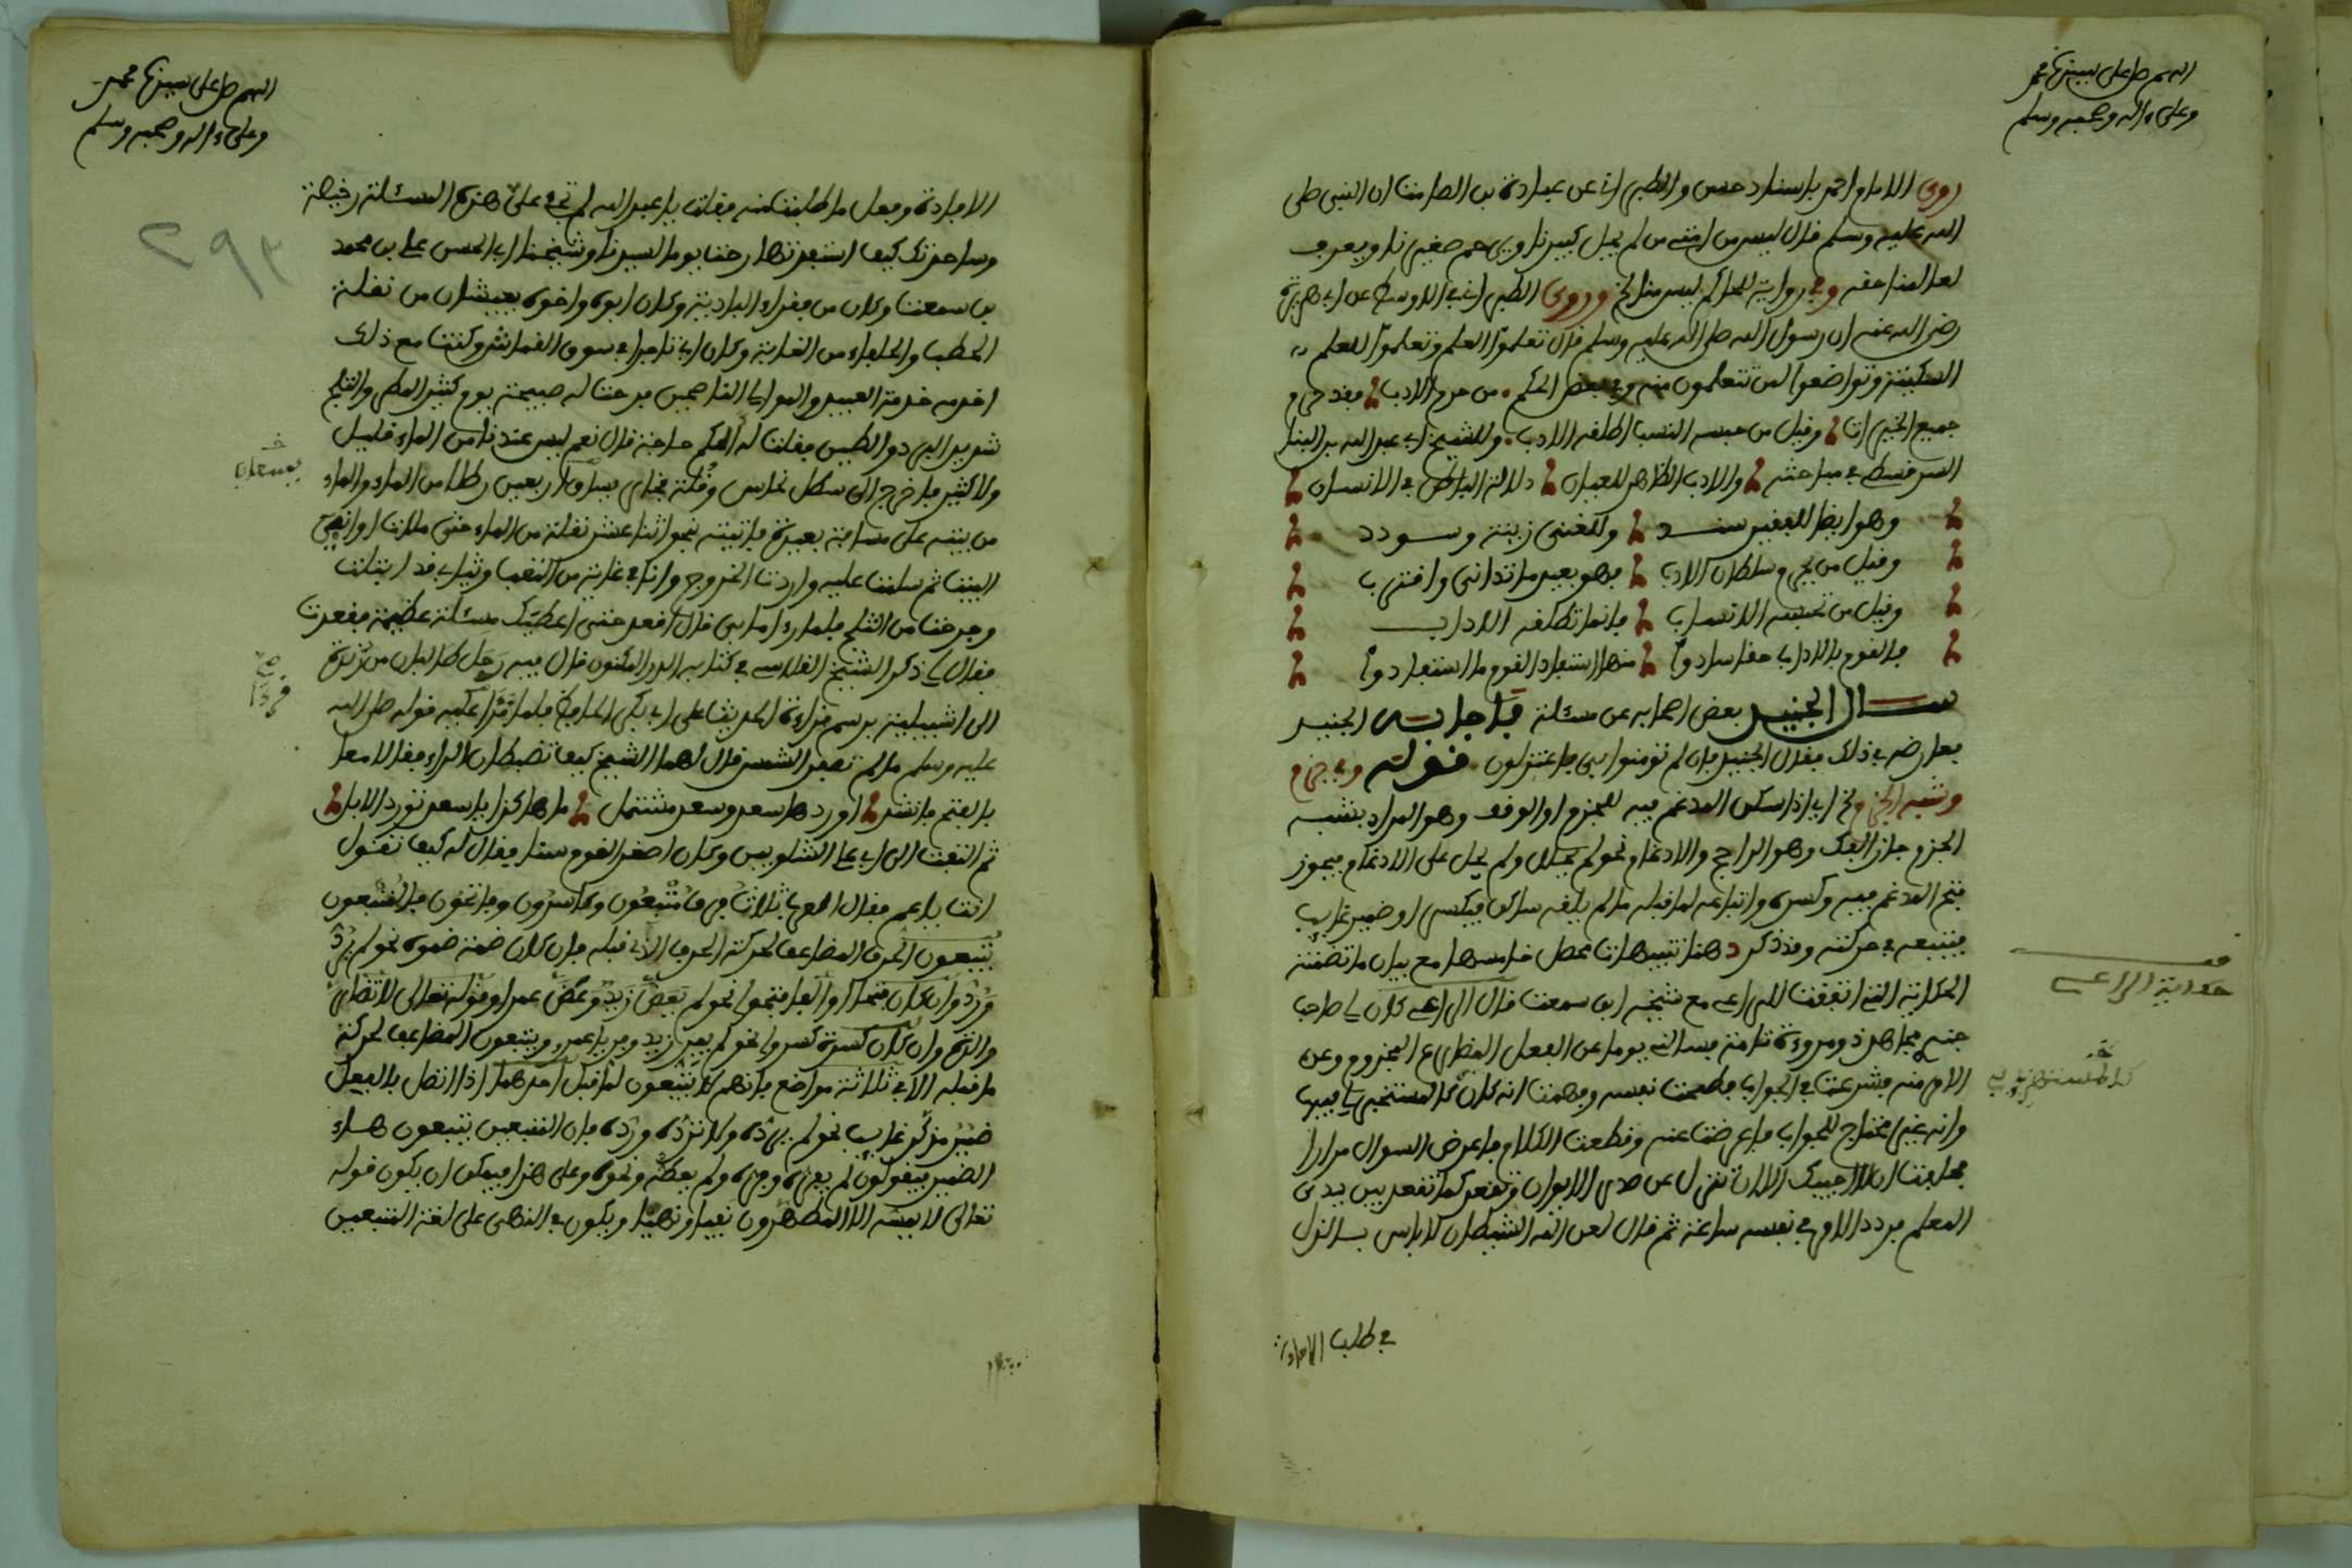 اللهم صل على سيدنا محمد
وعلى ءاله وصحبه وسلم
روى الامام احمد باسناد حسن والطبراني عن عبادة بن الصامت ان النبي صلى
الله عليه وسلم قال ليس من امتي من لم يجل كبيرنا ويرحم صغيرنا ويعرف
لعالمنا حقه وفي رواية للحاكم ليس منا الخ وروى الطبراني في الاوسط عن ابي هريرة
رضي الله عنه ان رسول الله صلى الله عليه وسلم قال تعلموا العلم وتعلموا للعلم
السكينة وتواضعوا لمن تتعلمون منه وفي بعض الحكم من حرم الادب فقد حرم
جميع الخيرات وقيل من حبسه النسب اطلقه الادب وللشيخ ابي عبد الله بن البنا
السرقسطي في مباحثه والادب الظاهر للعيان دلالة الباطن في الانسان
وهو ايضا للفقير سند وللغني زينة وسودد
وقيل من يحرم سلطان الادب فهو بعيد ما تدانى واقترب
وقيل من تحبسه الانساب فانما تطلقه الاداب
فالقوم بالاداب حقا سادوا منها استفاد القوم ما استفادوا
سال الجنيد بعض اصحابه عن مسئلة فاجابه الجنيد
فعارضه في ذلك فقال الجنيد فان لم تومنوا بي فاعتزلون قوله وفي جزم
وشبه الجزم الخ اي اذا سكن المدغم فيه للجزم او الوقف وهو المراد بشبه
الجزم جاز الفك وهو الراجح والادغام نحو لم يحلل ولم يحل على الادغام فيجوز
فتح المدغم فيه وكسره واتباعه لما قبله ما لم يلقه ساكن فيكسر او ضمير غايب
فيتبعه في حركته وقد ذكر د هنا تنبيهات محصل خامسها مع بيان ما تضمنته
الحكاية التي اتفقت للراعي مع شيخه ابن سمعت قال الراعي كان لي صاحب
جندي مجاهد ذو مروءة تامة فسالني يوما عن الفعل المضارع المجزوم وعن
الامر منه فشرعت في الجواب فطمحت نفسه وفهمت انه كان كالمستخبر لي فيها
وانه غير محتاج للجواب فاعرضت عنه وقطعت الكلام فاعرض السوال مرارا
فحلفت ان لا اجيبك الا ان تنزل عن صدر الايوان وتقعد كما تقعد بين يدي
المعلم فردد الامر في نفسه ساعة ثم قال لعن الله الشيطان لا باس بالذل
في طلب الافادة
حكاية الراعي
اللهم صل على سيدنا محمد
وعلى ءاله وصحبه وسلم
الافادة وفعل ما طلبت منه فقلت يا عبد الله لم تجئ على هذه المسئلة رخيصة
وساحدثك كيف استفدتها رحت يوما لسيدنا وشيخنا ابي الحسن علي بن محمد
بن سمعت وكان من فقراء البادية وكان ابوه واخوه يعيشان من نقلة
الحطب والحلفاء من الغابة وكان ابي تاجرا في سوق القماش وكنت مع ذلك
اخدمه خدمة العبيد والموالي الناصحين فرحت له صبيحة يوم كثير المطر والثلج
شديد البرد والطين فقلت له الكم حاجة قال نعم ليس عندنا من الماء قليل
ولا كثير فاخرج الي سطل نحاس وقلة فخار يساوي اربعين رطلا من الماء والماء
من بيته على مسافة بعيدة فاتيته بنحو اثنا عشر نقلة من الماء حتى ملات اواني
البيت ثم سلمت عليه واردت الخروج وانا في غاية من التعب وثيابي قد ابتلت
وجرحت من الثلج فلما رءا ما بي قال اقعد حتى اعطيك مسئلة عظيمة فقعدت
فقال لي ذكر الشيخ الفلاسي في كتابه الدر المكنون قال فيه رحل طالبان من رندة
الى اشبيلية برسم قراءة الحديث على ابي بكر الحافظ فلما قرا عليه قوله صلى الله
عليه وسلم ما لم تصفر الشمس قال لهما الشيخ كيف تضبطان الراء فقالا معا
بالفتح فانشد اوردها سعد وسعد مشتمل ما هاكذا يا سعد تورد الابل
ثم التفت الى ابي علي الشلوبين وكان اصغر القوم سنا فقال له كيف تقول
انت يا عم فقال العرب ثلاث فرق متبعون وكاسرون وفاتحون فالمتبعون
يتبعون الحرف المضاعف لحركة الحرف الذي قبله فان كان ضمة ضموه نحو لم يرد
ورد وان كان فتحا او الفا فتحوا نحو لم يعض زيد وعض عمرا وقوله تعالى لا تضار
والدة وان كان كسرة كسروا نحو لم يفر زيد وفر يا عمرو ويتبعون المضاعف لحركة
ما قبله الا في ثلاثة مواضع فانهم لا يتبعون لما قبل احدهما اذا اتصل بالفعل
ضمير مذكر غايب نحو لم يرده ولا ترده ورده فان المتبعين يتبعون هاء
الضمير فيقولون لم يفره وفره ولم يعضه ونحوه وعلى هذا فيمكن ان يكون قوله
تعالى لا يمسه الا المطهرون نفيا ونهيا ويكون في النهي على لغة المتبعين